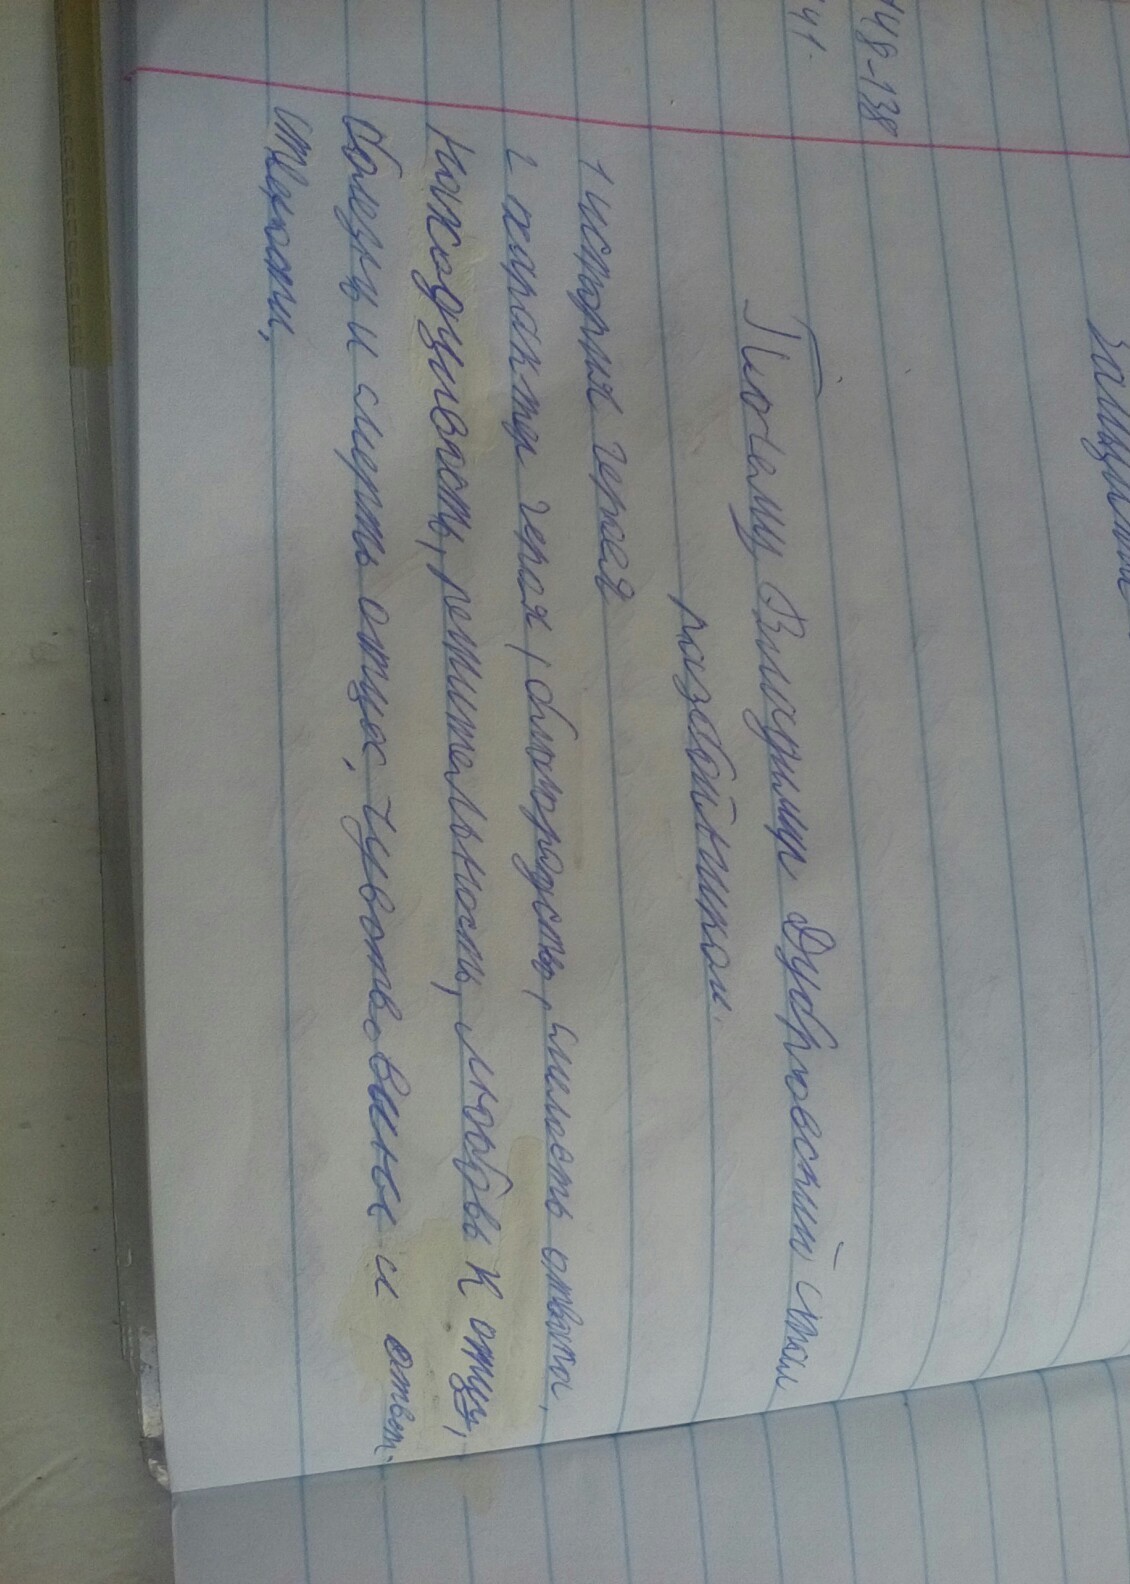 защит
148-138
41.
Почему Владимир Дубровский стал
разбойником.
1 история героев
2 характер героя, благородство, смелость отвага,
находчивость, решительность, любовь к отцу,
болезнь и смерть отца, чувство вины и ответ-